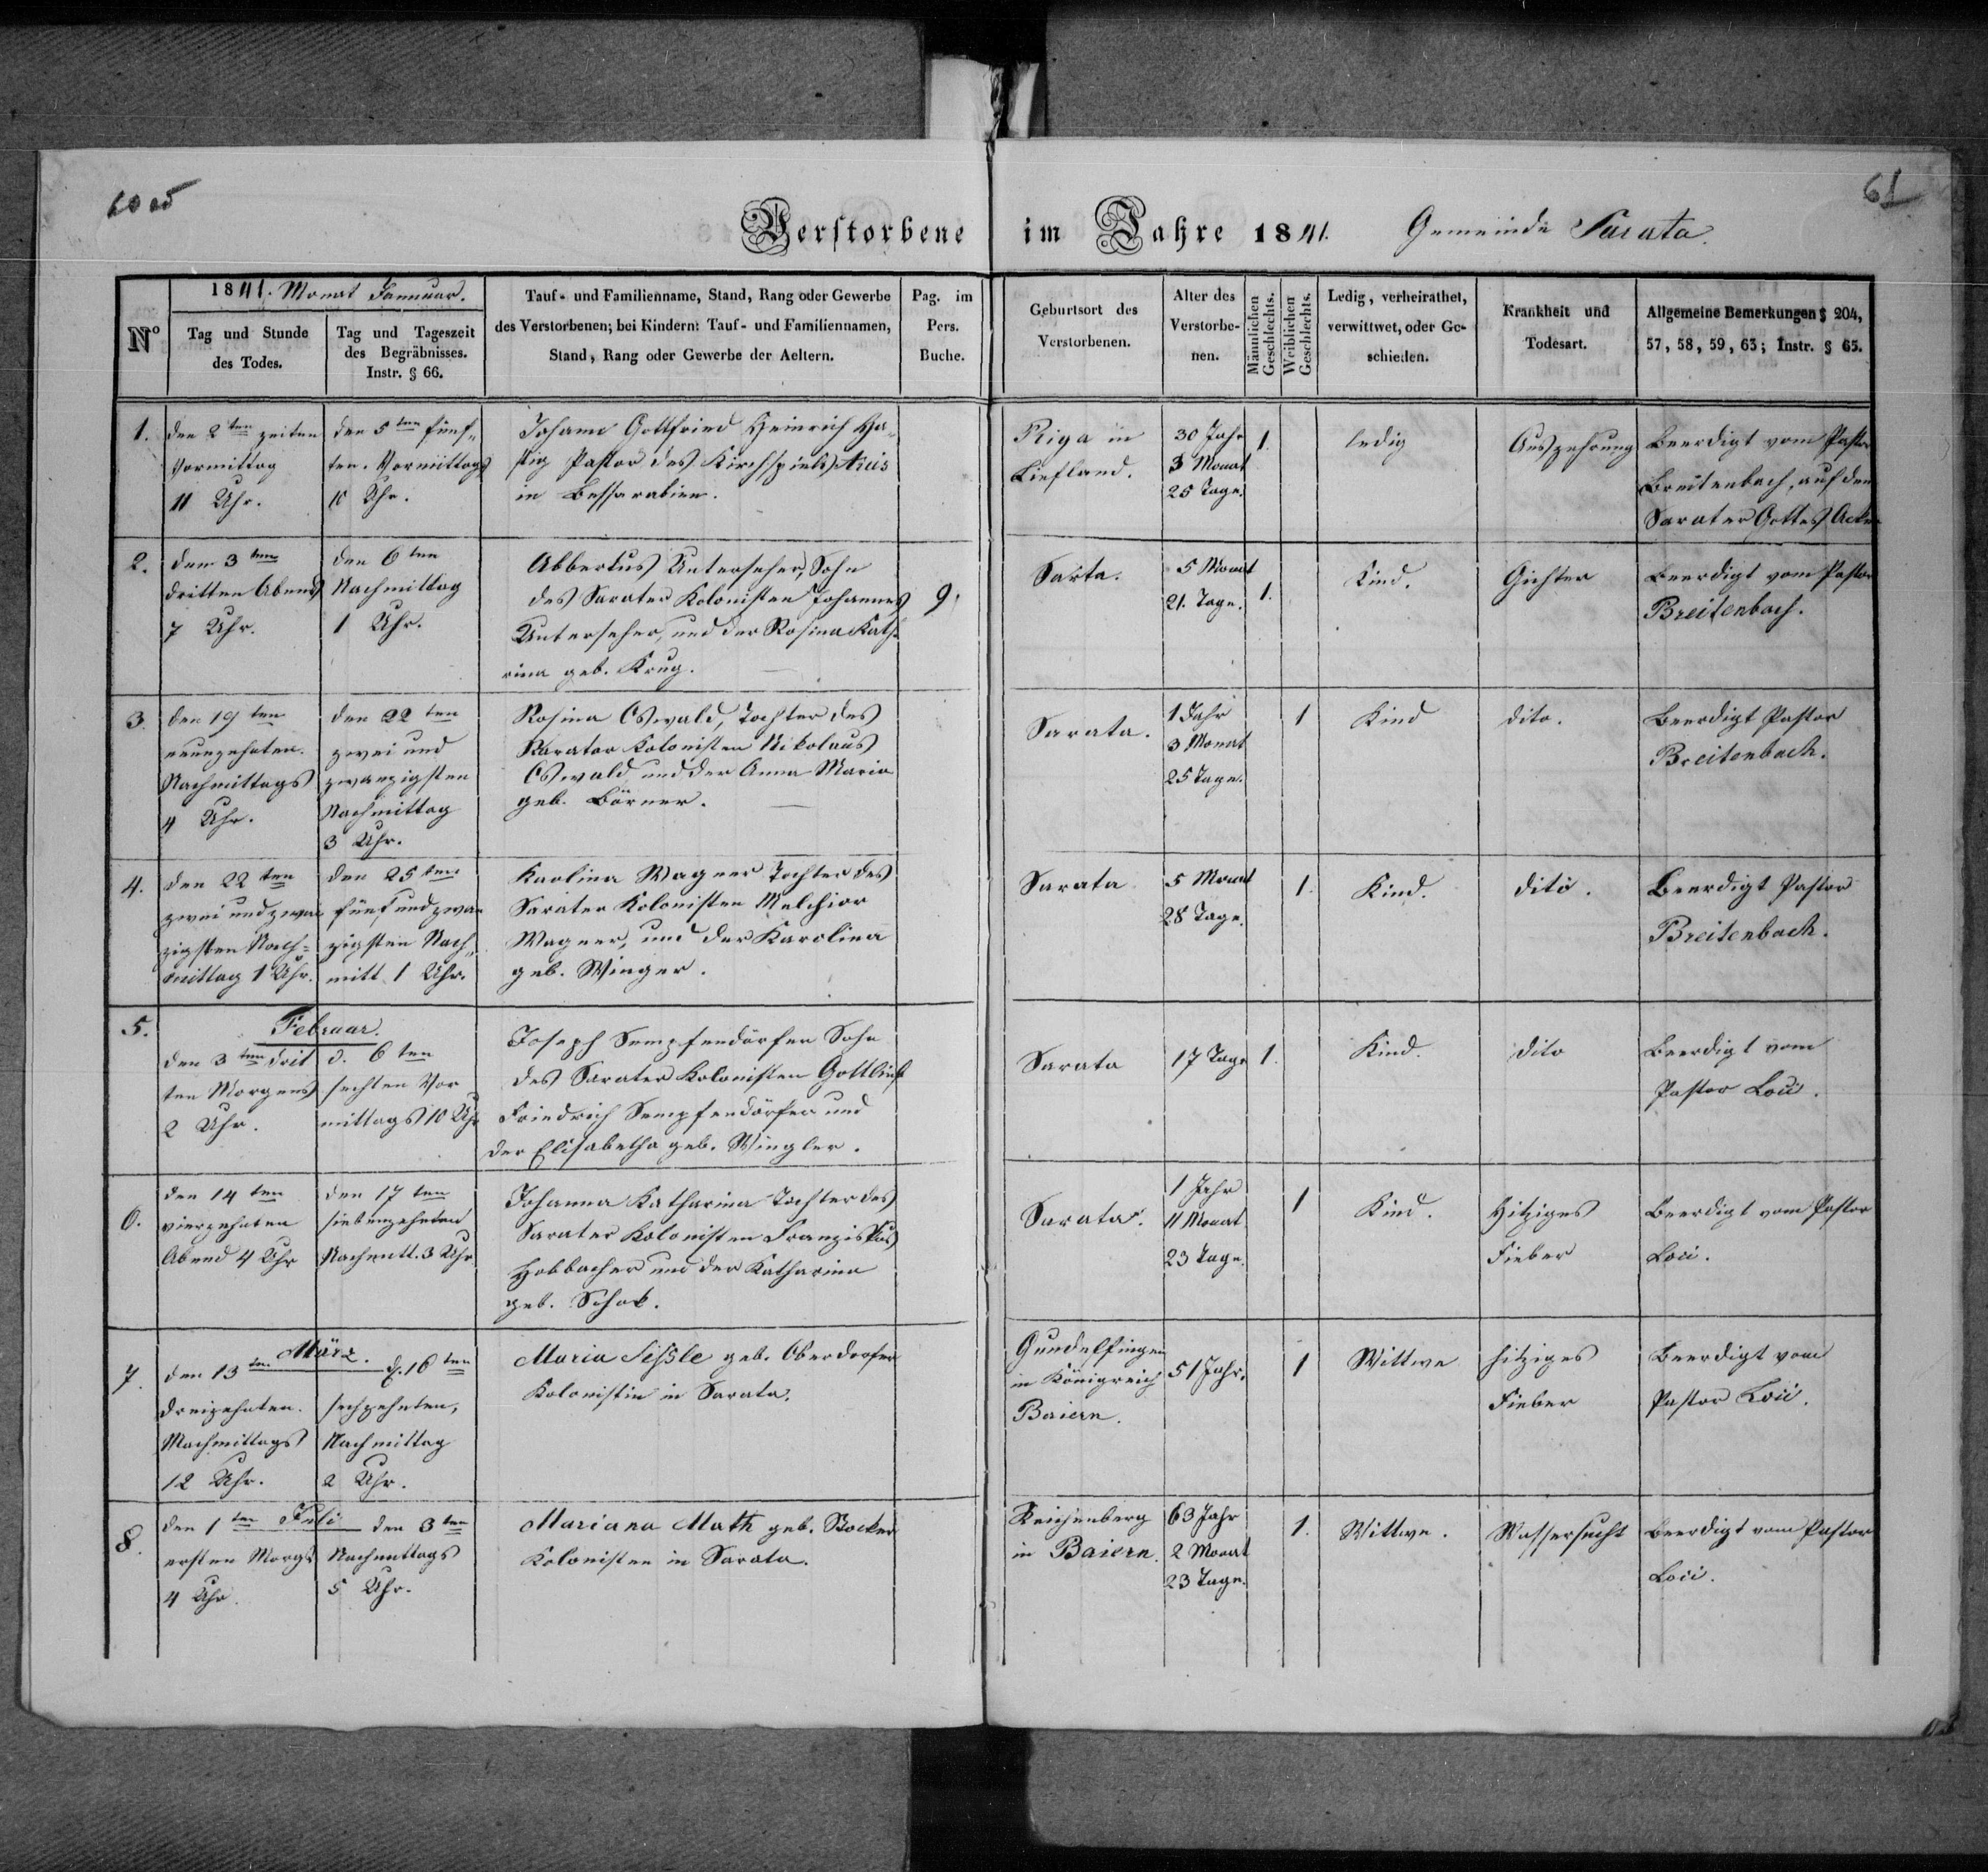 61
Verstorbene im Jahre 1841. Gemeinde Sarata.
No
1841. Monat Januar.
Tag und Stunde des Todes.
Tag und Tageszeit des Begräbnisses. Instr. § 66.
Tauf- und Familienname, Stand, Rang oder Gewerbe
des Verstorbenen; bei Kindern: Tauf- und Familiennamen,
Stand, Rang oder Gewerbe der Aeltern.
Pag. im Pers. Buche.
Geburtsort des Verstorbenen.
Alter des Verstorbe-nen.
Männlichen Geschlechts.
Weiblichen Geschlechts.
Ledig, verheirathet, verwittwet, oder Ge-schieden.
Krankheit und Todesart.
Allgemeine Bemerkungen § 204, 57, 58, 59, 63; Instr. § 65.
1.
den 2ten zeiten
Vormittag
11 Uhr.
den 5ten fünf-
ten. Vormittags
10 Uhr.
Johann Gottfried Heinrich Ha-
stig Pastor des Kirchspiels Arcis
in Bessarabien.
Riga in
Liefland.
30 Jahr
3 Monat
25 Tage.
1.
ledig
Auszehrung
Beerdigt vom Pastor
Breitenbach, auf den
Sarater Gottes Acker
2.
dem 3ten
dritten Abends
7 Uhr.
den 6ten
Nachmittag
1 Uhr.
Abbertus Unterseher, Sohn
des Sarater Kolonisten Johannes
Unterseher, und der Rosina Kath-
rina geb. Krug.
9.
Sarta.
5 Monat
21. Tage.
1.
Kind.
Gichter
Beerdigt vom Pastor
Breitenbach.
3
den 19ten
neunzehnten.
Nachmittags
4 Uhr.
den 22ten
zwei und
zwanzigsten
Nachmittag
3 Uhr.
Rosina Oswald, Tochter des
Sarater Kolonisten Nikolaus
Oswald und der Anna Maria
geb. Börner.
Sarata.
1 Jahr
3 Monat
25 Tage.
1
Kind
dito.
Beerdigt Pastor
Breitenbach.
4.
den 22ten
zwei und zwan
zigsten Nach=
mittag 1 Uhr.
den 25ten
fünf und zwan
zigsten Nach
mitt. 1 Uhr.
Karlina Wagner Tochter des
Sarater Kolonisten Melchior
Wagner, und der Karolina
geb. Winger.
Sarata
5 Monat
28 Tage.
1.
Kind.
dito.
Beerdigt Pastor
Breitenbach.
5.
Februar.
den 3ten drit
ten Morgens
2 Uhr.
d. 6ten
sechten Vor
mittags 10 Uhr
Joseph Sempfendörfer Sohn
des Sarater Kolonisten Gottlieb
Friedrich Sempfendörfer und
der Elisabetha geb. Wingler.
Sarata
17 Tage
1.
Kind.
dito
Beerdigt vom
Pastor Loci.
6.
den 14ten
vierzehnten
Abend 4 Uhr
den 17ten
siebenzehnten
Nachmitt. 3 Uhr
Johanna Katharina Tochter des
Sarater Kolonisten Franziskus
Hobbacher und der Katharina
geb. Schok.
Sarata.
1 Jahr
11 Monat
23 Tage.
1
Kind.
Hitziges
Fieber
Beerdigt vom Pastor
Loci.
7.
März.
den 13ten
dreizehnten.
Nachmittags
12 Uhr.
d. 16ten
sechzehnten,
Nachmittag
2 Uhr.
Maria Sißle geb. Oberdorfer
Kolonistin in Sarata.
Gundelfingen
in Königreich
Baiern.
51 Jahr.
1
Wittwe
hitziges
Fieber
Beerdigt vom
Pastor Loci.
8.
Juli
den 1ten
ersten Morgs
4 Uhr.
den 3ten
Nachmittags
5 Uhr.
Mariana Math geb. Bocker
Kolonisten in Sarata.
Reichenberg
in Baiern.
63 Jahr
2 Monat
23 Tage.
1.
Wittwe.
Wassersucht
Beerdigt vom Pastor
Loci.